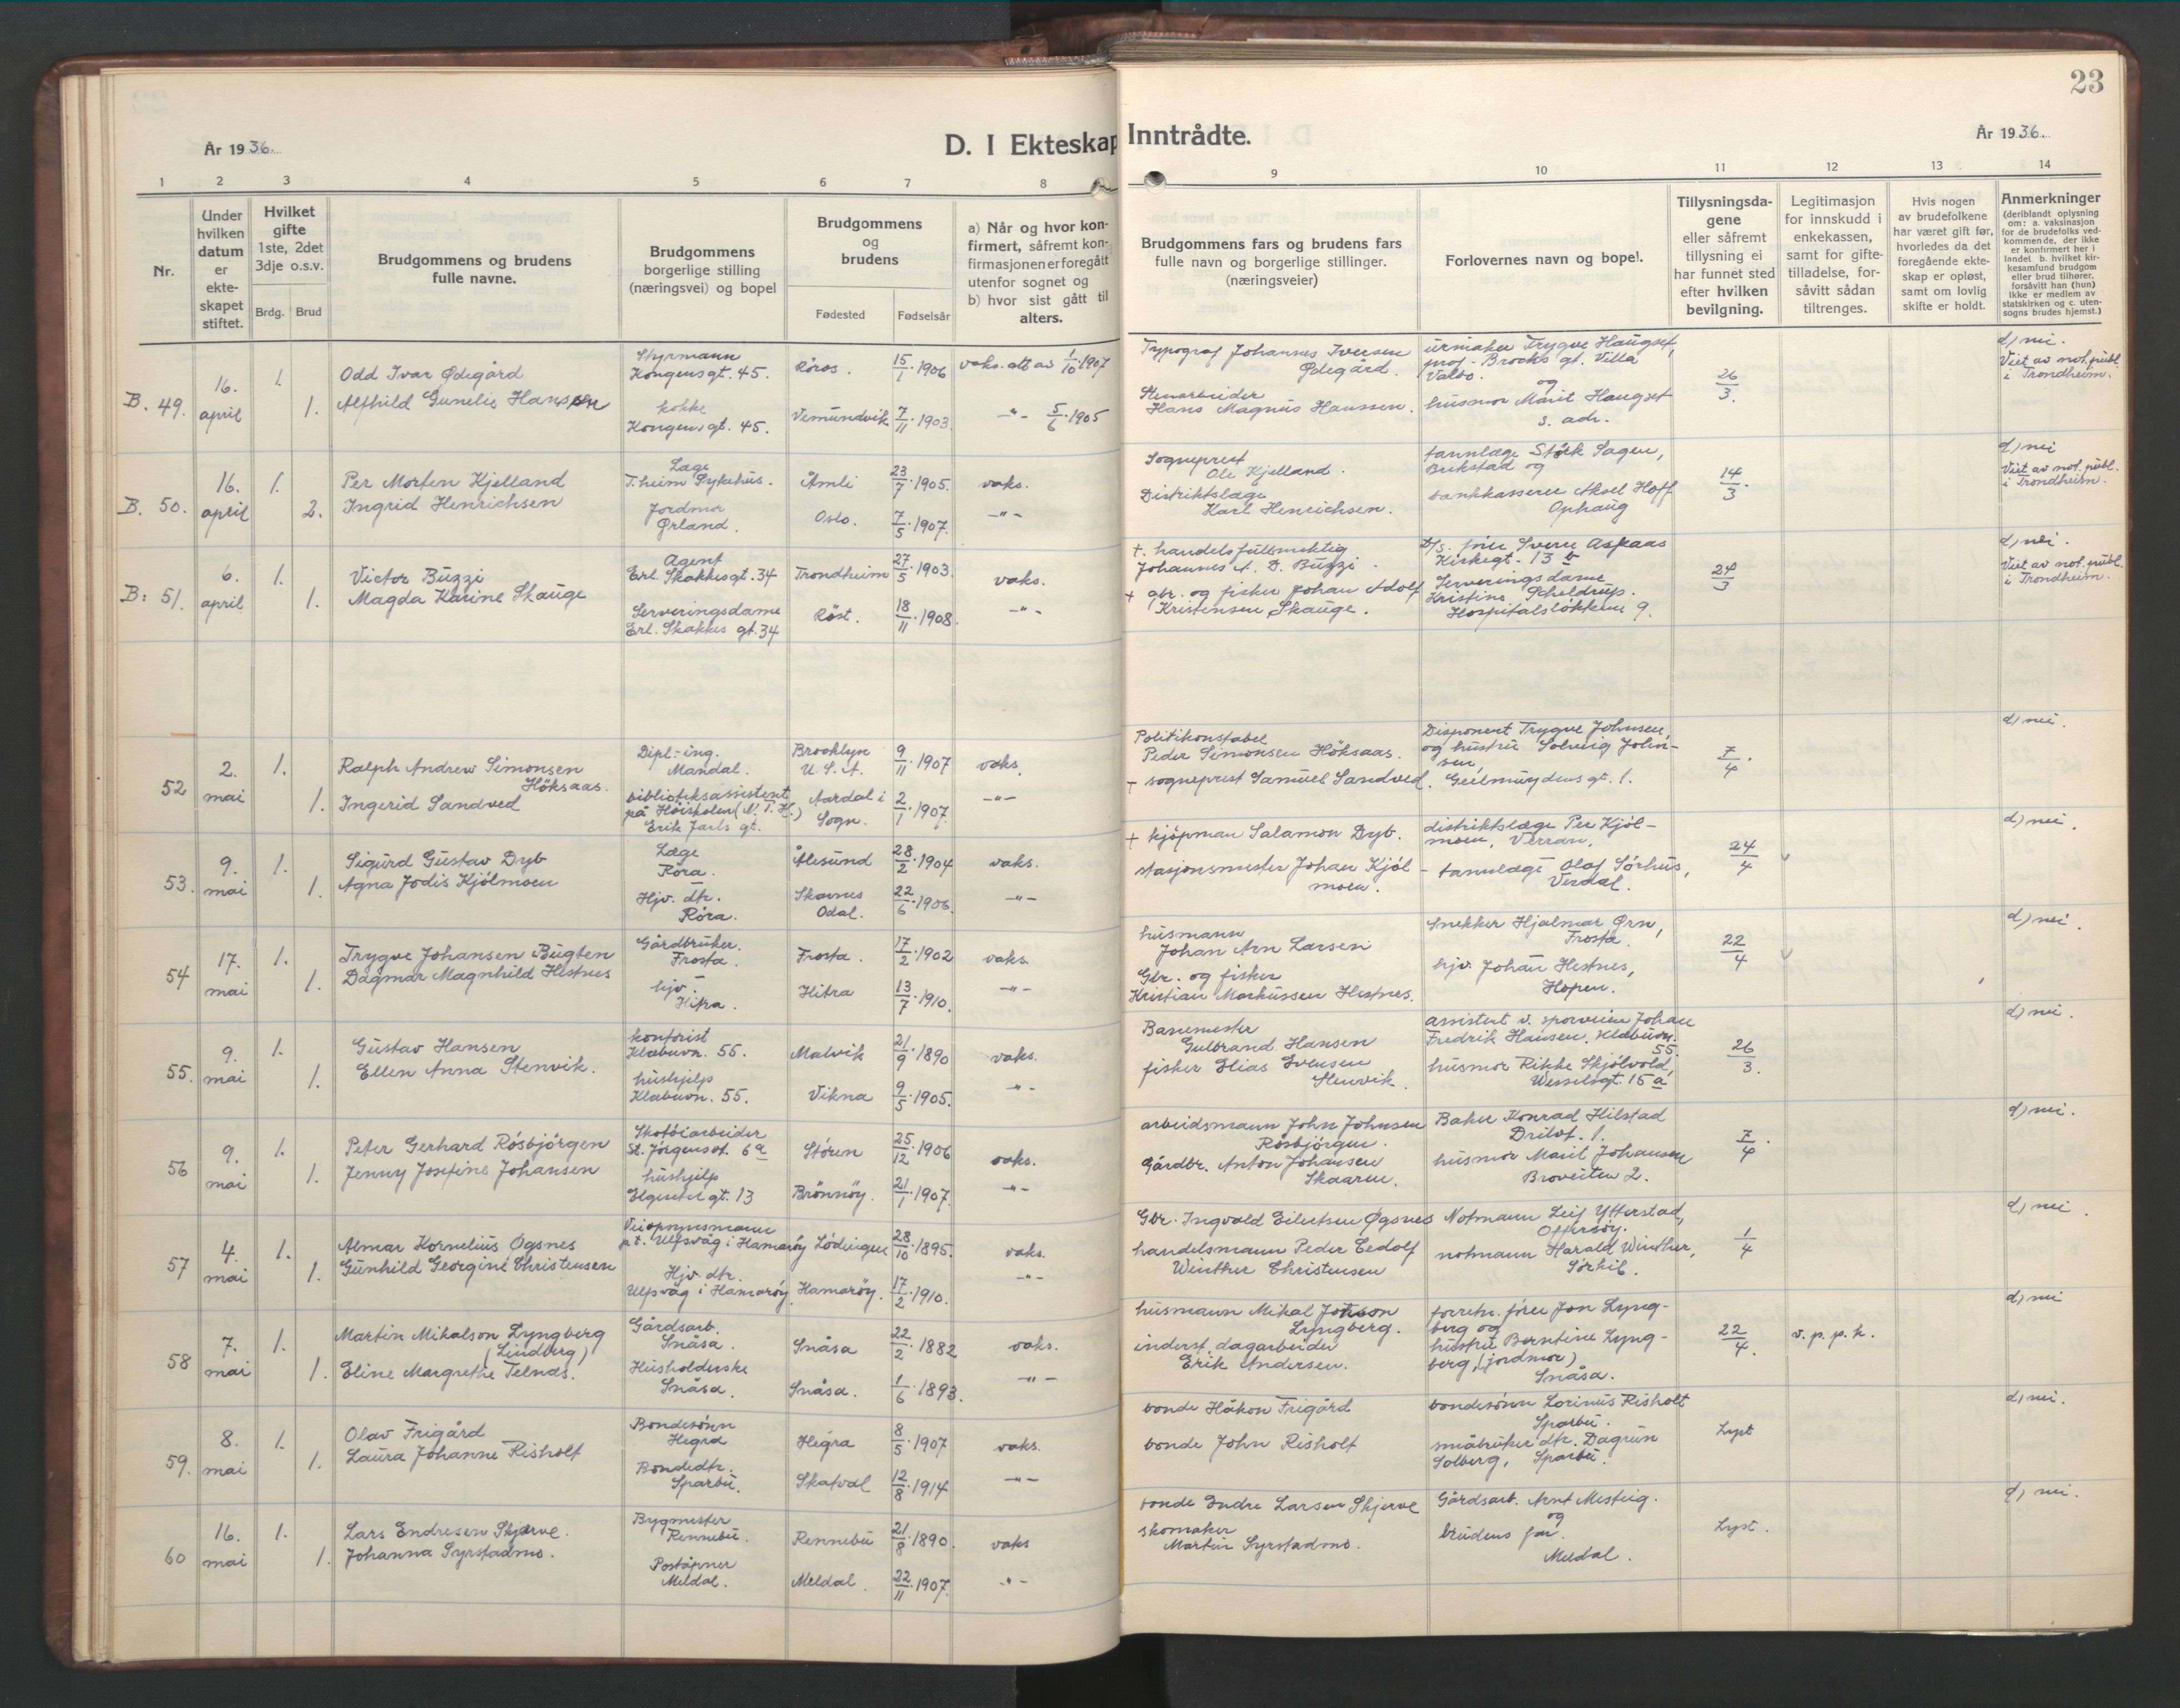 23
År 1936.
D. I Ekteskap Inntrådte.
År 1936.
1 2 3 4 5 6 7 8 9 10 11 12 13 14
Nr.
Under hvilken datum er ekteskapet stiftet.
Hvilket gifte 1ste, 2det 3dje o.s.v.
Brdg. Brud
Brudgommens og brudens fulle navne.
Brudgommens borgerlige stilling (næringsvei) og bopel
Brudgommens og brudens
Fødested Fødselsår
a) Når og hvor konfirmert, såfremt konfirmasjonen er foregått utenfor sognet og
b) hvor sist gått til alters.
Brudgommens fars og brudens fars fulle navn og borgerlige stillinger. (næringsveier)
Forlovernes navn og bopel.
Tillysningsdagene eller såfremt tillysning ei har funnet sted efter hvilken bevilgning.
Legitimasjon for innskudd i enkekassen, samt for giftetilladelse, forsåvitt sådan tiltrenges.
Hvis nogen av brudefolkene har været gift før, hvorledes da det foregående ekteskap er opløst, samt om lovlig skifte er holdt.
Anmerkninger
(deriblandt oplysning om: a. vaksinasjon for de brudefolks vedkommende, der ikke er konfirmert her i landet b. hvilket kirkesamfund brudgom eller brud tilhører, forsåvitt han (hun) ikke er medlem av statskirken og c. utensogns brudes hjemst.)
B. 49. 16. april 1. 1.
Odd Ivar Ødegård
Styrmann Kongensgt. 45.
Røros. 15/1 1906 vaks. att av 1/10 1907
Alfhild Gunelie Hanssen
kokke Kongensgt. 45.
Vemundvik 7/11 1903. -"- 5/6 1905
Typograf Johannes Iversen Ødegård.
Stenarbeider Hans Magnus Hanssen.
urmaker Trygve Haugset, prof. Brochs gt. Villa Valbo. og
husmor Marit Haugset s. adr.
26/3.
d) nei. Viet av not. publ. i Trondheim.
B. 50. 16. april 1. 2.
Per Morten Kjelland
Læge T.heim Sykehus.
Åmli 23/7 1905. vaks.
Ingrid Henrichsen
Jordmor Ørland.
Oslo. 7/5 1907. -"-
Sogneprest Ole Kjelland.
Distriktslæge Karl Henrichsen.
tannlæge Stórk Sagen, Brekstad og
bankkasserer Aksel Hoff Ophaug
14/3.
d) nei Viet av not. publ. i Trondheim.
B. 51. 6. april 1. 1.
Victor Buzzi
Agent Erl. Skakkesgt. 34
Trondheim 27/5 1903. vaks.
Magda Karine Skauge
Serveringsdame Erl. Skakkes gt. 34
Røst. 18/11 1908. -"-
+ handelsfullmektig Johannes A. D. Buzzi.
+ gbr. og fisker Johan Adolf Kristensen Skauge.
Sverre Aspaas Kirkegt. 13 b
Serveringsdame Kristine Scheldrup. Hospitalsløkkene 9.
24/3
d) nei. Viet av not. publ. i Trondheim.
52 2. mai 1. 1.
Ralph Andrew Simonsen Höksaas.
Dipl-ing. Mandal.
Brooklyn U.S.A. 9/11 1907 vaks.
Ingerid Sandved
bibliotekassistent på Höiskolen (N.T.H.) Erik Jarls gt.
Aardal i Sogn. 2/1 1907. -"-
Politikonstabel Peder Simonsen Höksaas.
+ sogneprest Samuel Sandved.
Disponent Trygve Johnsen, og hustru Solveig Johnsen, Geelmuydens gt. 1.
7/4.
d) nei.
53. 9. mai 1. 1.
Sigurd Gustav Dyb
Læge Röra.
Ålesund 28/2 1904 vaks.
Agna Jodis Kjölmoen
Hjv. dtr. Röra.
Skarnes Odal. 22/6 1906. -"-
+ kjöpman Salamon Dyb.
stasjonsmester Johan Kjölmoen.
distriktslæge Per Kjölmoen, Verran.
tannlæge Olaf Sörhus, Verdal.
24/4 v
d) nei.
54 17. mai 1. 1.
Trygve Johansen Bugten
Gårdbruker. Frosta.
Frosta. 17/2 1902 vaks.
Dagmar Magnhild Hestnes
hjv. Hitra.
Hitra 13/7 1910. -"-
husmann Johan Arn Larsen
Gbr. og fisker Kristian Markussen Hestnes.
Snekker Hjalmar Ørn, Frosta.
hjv. Johan Hestnes, Hopen.
22/4 v
d) nei.
55. 9. mai 1. 1.
Gustav Hansen
kontorist Klæbuvn. 55.
Malvik 21/9 1890 vaks.
Ellen Anna Stenvik.
hushjelp Klæbuvn. 55.
Vikna 9/5 1905. -"-
Banemester Gulbrand Hansen
fisker Elias Svensen Stenvik.
assistent v. sporveien Johan Fredrik Hansen, Klæbuvn. 55.
husmor Rikke Skjölvold, Wesselsgt. 15 a
26/3.
d) nei.
56 9. mai 1. 1.
Peter Gerhard Rösbjörgen
Skotöiarbeider St. Jörgensvt. 6 a
Stören 25/12 1906 vaks.
Jenny Josefine Johansen
hushjelp Elgeseter gt. 13
Brönnöy. 21/1 1907. -"-
arbeidsmann John Johnsen Rösbjörgen.
Gårdbr. Anton Johansen Skaaren.
Baker Konrad Hilstad Drilvt. 1.
husmor Marit Johansen Broveiten 2.
7/4.
d) nei.
57 4. mai 1. 1.
Almar Kornelius Øgsnes
Veiopsynsmann p.t. Ulfsvåg i Hamarøy
Lödingen 28/10 1895. vaks.
Gunhild Georgine Christensen
Hjv. dtr. Ulfsvåg i Hamarøy.
Hamarøy. 17/2 1910. -"-
Gbr. Ingvald Eilertsen Øgsnes
handelsmann Peder Eedolf Winther Christensen
Notmann Leif Ytterstad, Offersöy.
notmann Harald Winther, Sörkil.
1/4
d) nei.
58 7. mai 1. 1.
Martin Mikalson Lyngberg (Lindberg)
Gårdsarb. Snåsa.
Snåsa 22/2 1882 vaks.
Eline Margrethe Telnås.
Husholderske Snåsa.
Snåsa. 1/6 1893. -"-
husmann Mikal Johnson Lyngberg.
inderst, dagarbeider Erik Andersen.
forretn. förer Jon Lyngberg og
hustru Berntine Lyngberg, (jordmor) Snåsa.
22/4. v. p. p. k.
d) nei
59. 8. mai 1. 1.
Olav Frigård
Bondesönn Hegra
Hegra 8/5 1907 vaks.
Laura Johanne Risholt
Bondedtr. Sparbu.
Skatval 12/8 1914 -"-
bonde Håkon Frigård
bonde John Risholt
bondesönn Lorinus Risholt Sparbu.
småbruker dtr. Dagrun Solberg, Sparbu.
Lyst
d) nei.
60 16. mai 1. 1.
Lars Endresen Skjerve.
Bygmester Rennebu.
Rennebu 21/8 1890. vaks
Johanna Syrstadmo.
Poståpner Meldal.
Meldal. 22/11 1907. -"-
bonde Endre Larsen Skjerve
skomaker Martin Syrstadmo.
Gårdsarb. Arnt Mesteig. og
brudens far. Meldal.
Lyst.
d) nei.